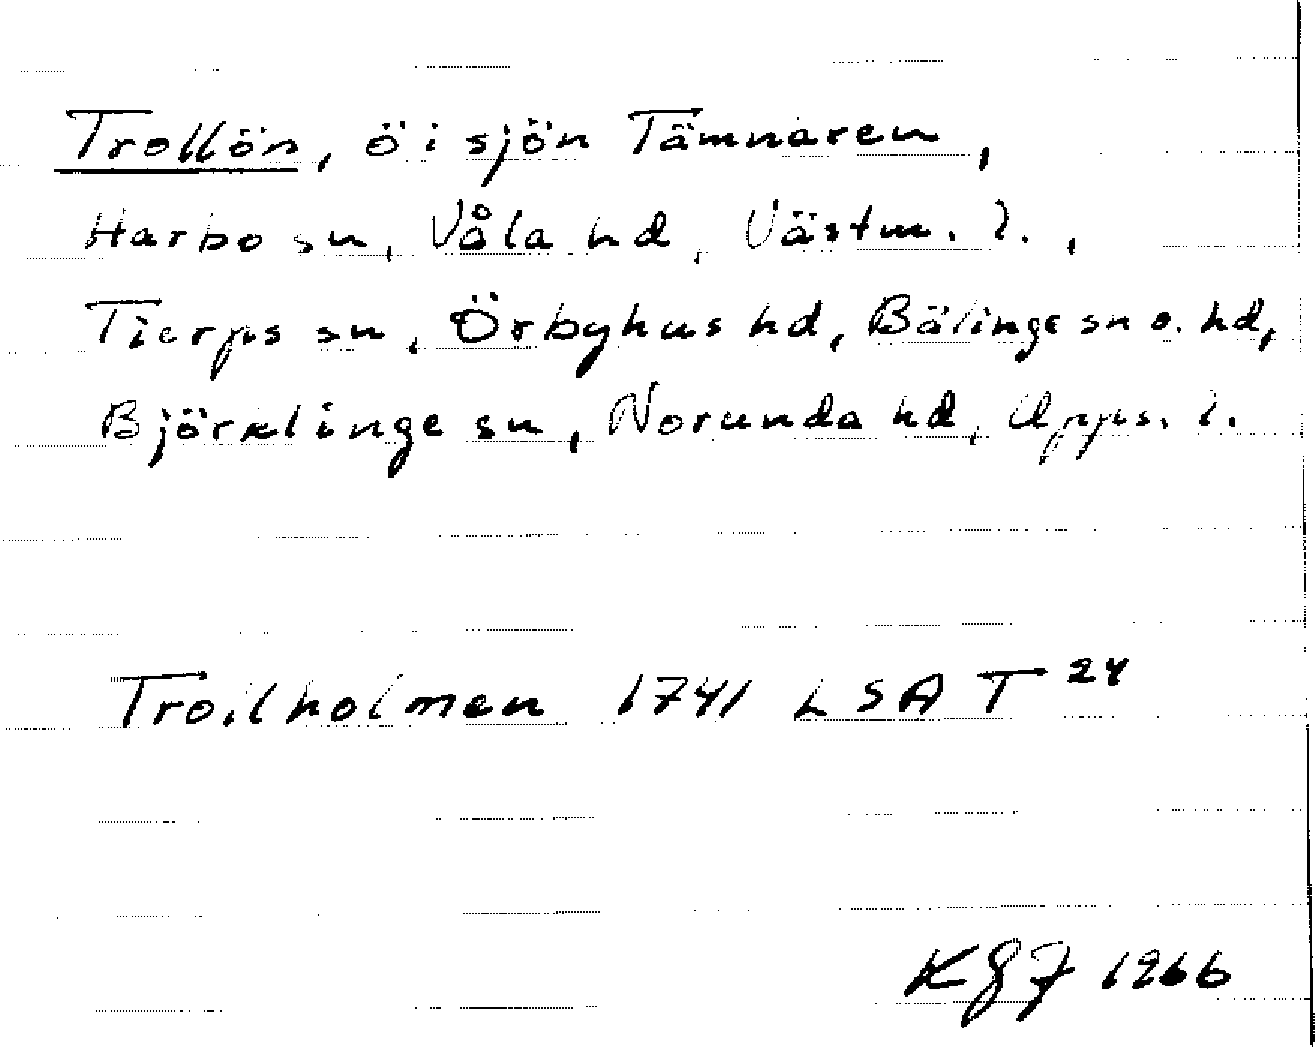 Trollön, ö i sjön Tämnaren,
Harbo sn, Våla hd, Västm. l.,
Tierps sn, Örbyhus hd, Bälinge sn o. hd,
Björklinge sn, Norunda hd, Upps. l.
Troilholmen 1741 LSA T 24
KGF 1966